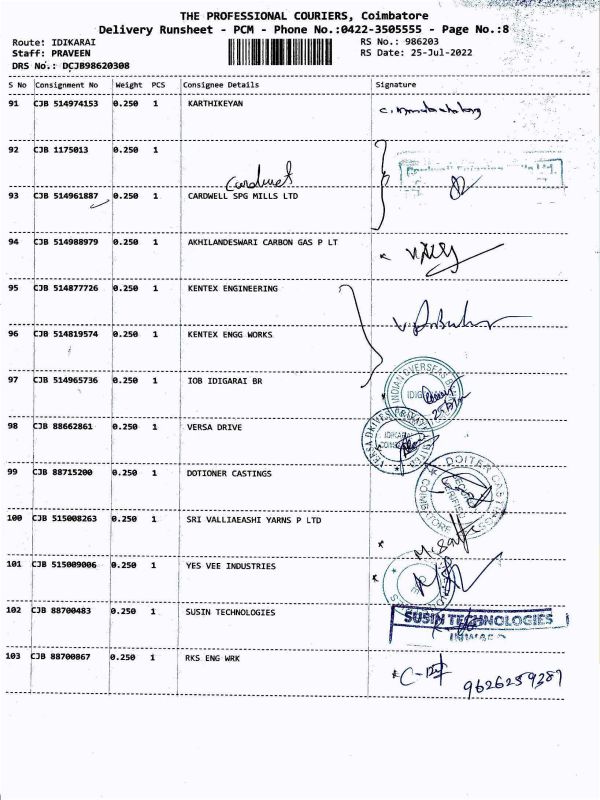 THE PROFESSIONAL COURIERS, Coimbatore
Delivery Runsheet - PCM - Phone No.:0422-3505555 - Page No.:8
Route: IDIKARAI RS No.: 986203
Staff: PRAVEEN RS Date: 25-Jul-2022
DRS No.: DCJB98620308
S No Consignment No Weight PCS Consignee Details Signature
91 CJB 514974153 0.250 1 KARTHIKEYAN
92 CJB 1175013 0.250 1
Cardwel
93 CJB 514961887 0.250 1 CARDWELL SPG MILLS LTD
94 CJB 514988979 0.250 1 AKHILANDESWARI CARBON GAS P LT
95 CJB 514877726 0.250 1 KENTEX ENGINEERING
96 CJB 514819574 0.250 1 KENTEX ENGG WORKS
97 CJB 514965736 0.250 1 IOB IDIGARAI BR
INDIAN OVERSEAS
98 CJB 88662861 0.250 1 VERSA DRIVE
99 CJB 88715200 0.250 1 DOTIONER CASTINGS
COIMBATORE
100 CJB 515008263 0.250 1 SRI VALLIAEASHI YARNS P LTD
101 CJB 515009006 0.250 1 YES VEE INDUSTRIES
102 CJB 88700483 0.250 1 SUSIN TECHNOLOGIES
SUSIN TECHNOLOGIES
INWARD
103 CJB 88700867 0.250 1 RKS ENG WRK
9626259387